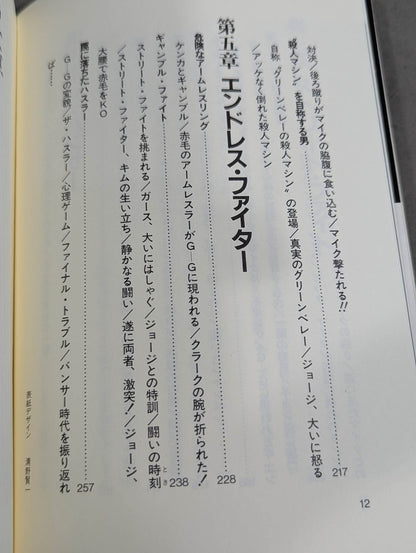 対決／後ろ蹴りがマイクの脇腹に食い込む／マイク撃たれる!!
“殺人マシン”を自称する男……217
自称“グリーンベレーの殺人マシン”の登場／真実のグリーンベレー／ジョージ、大いに怒る
／アッケなく倒れた殺人マシン
第五章 エンドレス・ファイター
危険なアームレスリング……228
ケンカとギャンブル／赤毛のアームレスラーがG―Gに現われる／クラークの腕が折られた!
ギャンブル・ファイト……238
ストリート・ファイトを挑まれる／ガース、大いにはしゃぐ／ジョージとの特訓／闘いの時刻
とき
／ストリート・ファイター、キムの生い立ち／静かなる闘い／遂に両者、激突!／ジョージ、
大腰で赤毛をKO
罠に落ちたハスラー……257
G―Gの宝貌／ザ・ハスラー／心理ゲーム／ファイナル・トラブル／バンサー時代を振り返れ
ば……
表紙デザイン 清野賢一
12